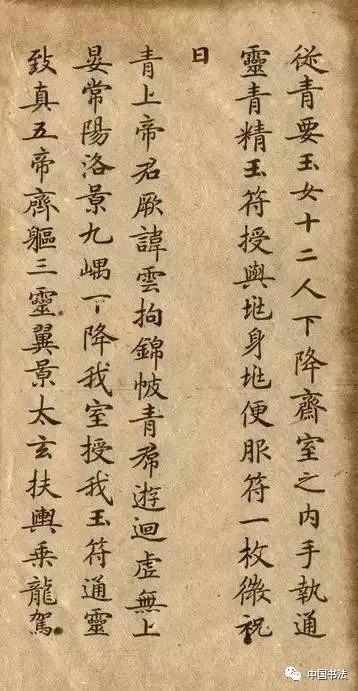 從青要玉女十二人下降齋室之内手執通
靈青精玉符授與兆身兆便服符一枚微祝
曰
青上帝君厥諱雲拘錦帔青帬遊迴虛無上
晏常陽洛景九嵎下降我室授我玉符通靈
致真五帝齊軀三靈翼景太玄扶輿乘龍駕
中国书法